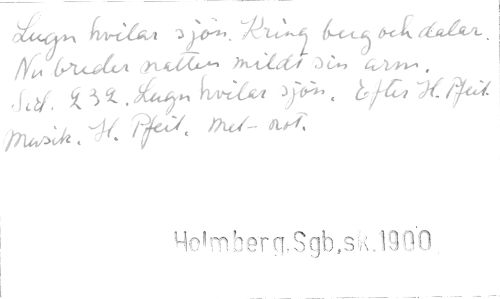 Lugn hvilar sjön. Kring berg och dalar.
Nu breder natten mildt sin arm.
Sid. 232. Lugn hvilar sjön. Efter H. Pfeil.
Musik. H. Pfeil. Mel-not.
Holmberg.Sgb,sk.1900